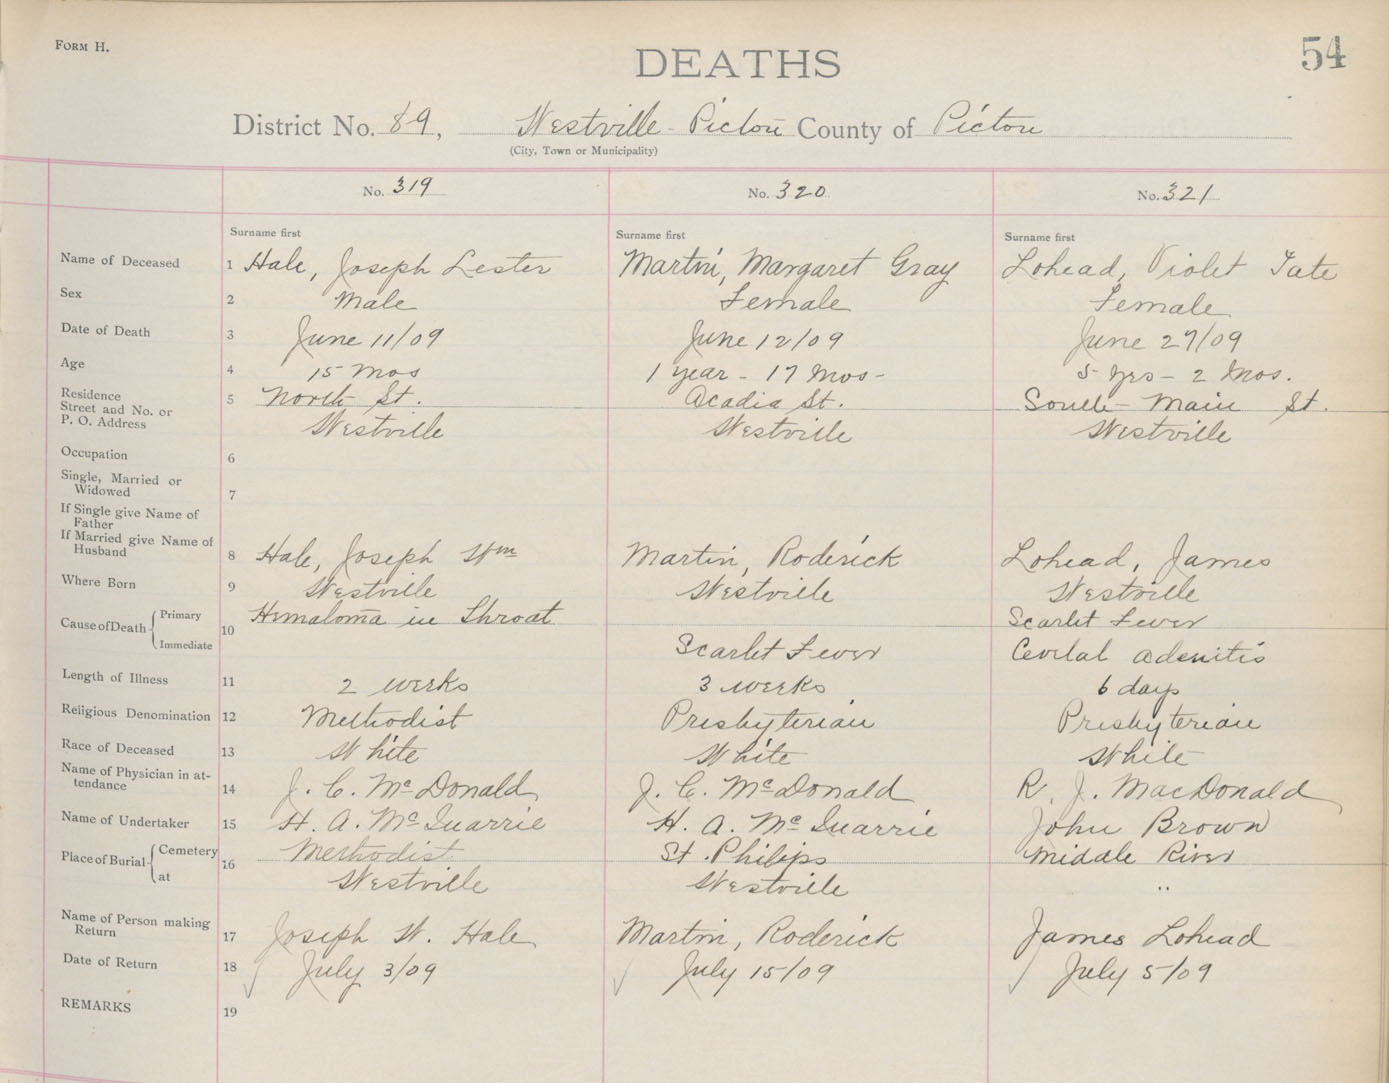 FORM H.
54
DEATHS
District No. 89, Westville - Pictou County of Pictou
(City, Town or Municipality)
No. 319 No. 320 No. 321
Surname first Surname first Surname first
Name of Deceased 1 Hale, Joseph Lester Martin, Margaret Gray Lohead, Violet Tate
Sex 2 Male Female Female
Date of Death 3 June 11/09 June 12/09 June 27/09
Age 4 15 Mos 1 year - 17 Mos - 5 yrs - 2 Mos.
Residence
Street and No. or 5 North St. Acadia St. South - Main St.
P. O. Address Westville Westville Westville
Occupation 6
Single, Married or
Widowed 7
If Single give Name of
Father
If Married give Name of
Husband 8 Hale, Joseph Wm Martin, Roderick Lohead, James
Where Born 9 Westville Westville Westville
Cause of Death Primary 10 Hematoma in Throat Scarlet Fever
Immediate Scarlet Fever adenitis
Length of Illness 11 2 weeks 3 weeks 6 days
Religious Denomination 12 Methodist Presbyterian Presbyterian
Race of Deceased 13 White White White
Name of Physician in at-
tendance 14 J. C. McDonald J. C. McDonald R. J. MacDonald
Name of Undertaker 15 H. A. McQuarrie H. A. McQuarrie John Brown
Place of Burial Cemetery 16 Methodist St. Philips Middle River
at Westville Westville "
Name of Person making
Return 17 Joseph W. Hale Martin, Roderick James Lohead
Date of Return 18 July 3/09 July 15/09 July 5/09
REMARKS 19